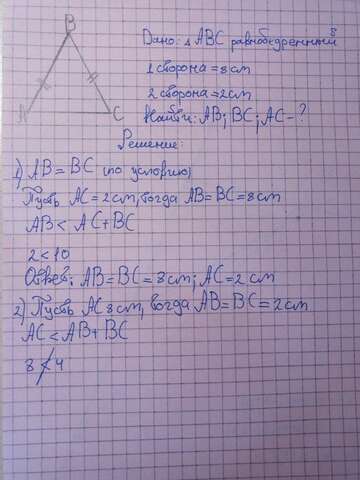 B
A
C
Дано: △ABC равнобедренный
1 сторона = 8 см
2 сторона = 2 см
Найти: AB; BC; AC - ?
Решение:
1) AB = BC (по условию)
Пусть AC = 2 см, тогда AB = BC = 8 см
AB < AC + BC
2 < 10
Ответ: AB = BC = 8 см; AC = 2 см
2) Пусть AC 8 см, тогда AB = BC = 2 см
AC < AB + BC
8 ≮ 4